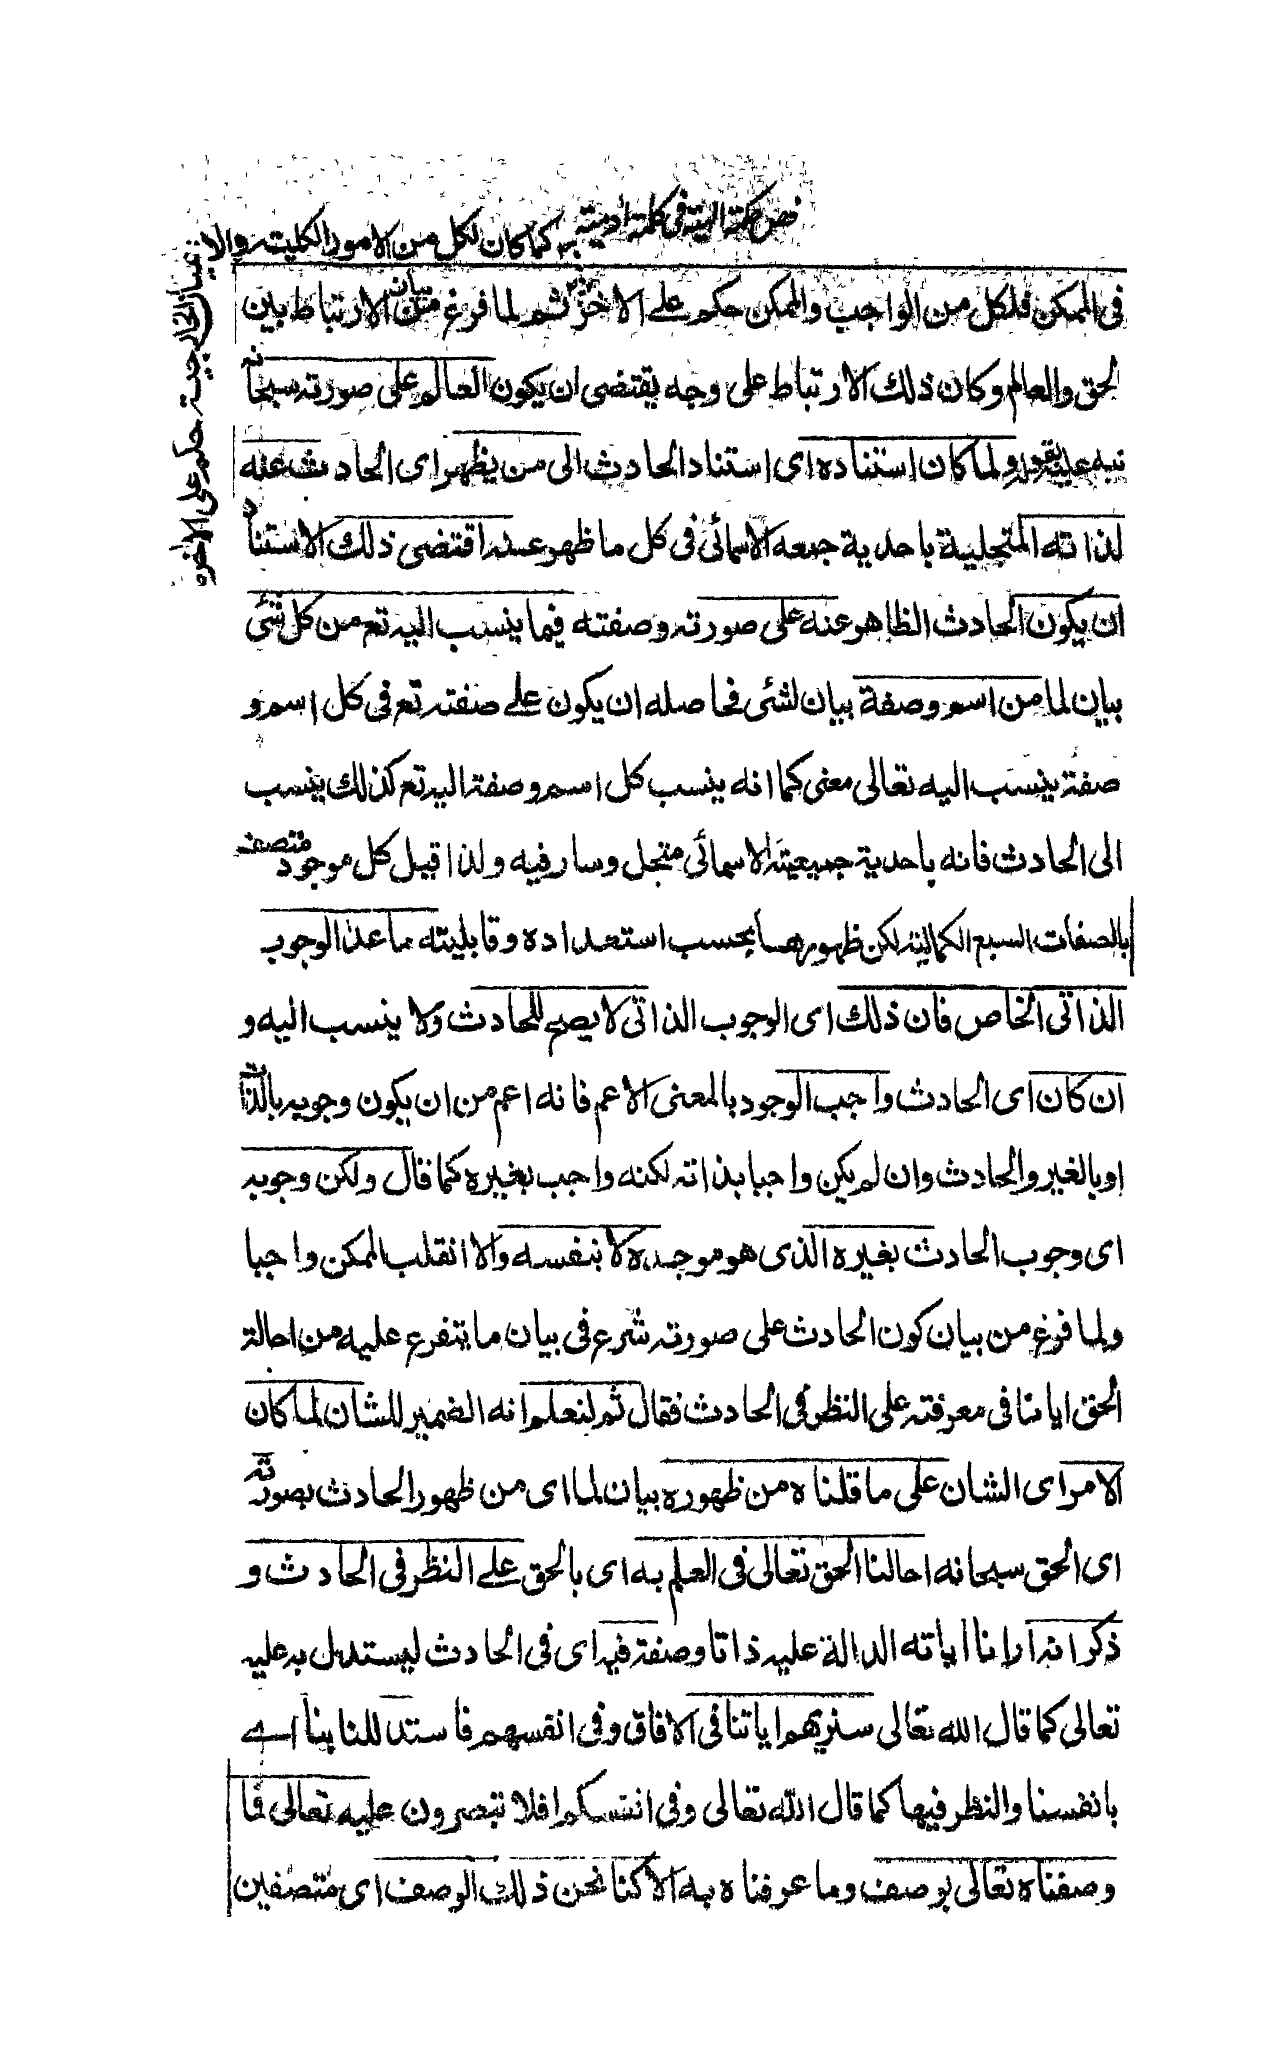 فص حكمة الهية في كلمة أدمية
به كما كان لكل من الامور الكلية والا
عيان الخارجية حكم على الاخر ه
في الممكن فلكل من الواجب والممكن حكم على الاخر ثم لما فرغ من بيان الارتباط بين
الحق والعالم وكان ذلك الارتباط على وجه يقتضي ان يكون العالم على صورته سبحانه
نبه عليه بقوله ولما كان استناده اى استناد الحادث الى من يظهر اى الحادث عنه
لذاته المتجلية باحدية جمعه الاسمائي في كل ما ظهر عنه اقتضى ذلك الاستناد
ان يكون الحادث الظاهر عنه على صورته وصفته فيما ينسب اليه تع من كل شئ
بيان لما من اسم وصفة بيان لشئ فحاصله ان يكون على صفته تع في كل اسم و
صفة ينسب اليه تعالى معنى كما انه ينسب كل اسم وصفة اليه تع كذلك ينسب
الى الحادث فانه باحدية جمعيته الاسمائي متجل وسار فيه ولذا قيل كل موجود متصف
بالصفات السبع الكمالية لكن ظهورها بحسب استعداده وقابليته ما عدا الوجوب
الذاتي الخاص فان ذلك اى الوجوب الذاتي لا يصح للحادث ولا ينسب اليه و
ان كان اى الحادث واجب الوجود بالمعنى الاعم فانه اعم من ان يكون وجوبه بالذات
او بالغير والحادث وان لم يكن واجبا بذاته لكنه واجب بغيره كما قال ولكن وجوبه
اى وجوب الحادث بغيره الذى هو موجده لا بنفسه والا انقلب الممكن واجبا
ولما فرغ من بيان كون الحادث على صورته شرع في بيان ما يتفرع عليه من احالة
الحق ايانا في معرفته على النظر في الحادث فقال ثم لنعلم انه الضمير للشان لما كان
الامر اى الشان على ما قلناه من ظهوره بيان لما اى من ظهور الحادث بصورته
اى الحق سبحانه احالنا الحق تعالى في العلم به اى بالحق على النظر في الحادث و
ذكر انه ارانا أياته الدالة عليه ذاتا وصفة فيه اى في الحادث ليستدل به عليه
تعالى كما قال الله تعالى سنريهم اياتنا في الافاق وفي انفسهم فاستدللنا بنا اے
بانفسنا والنظر فيها كما قال الله تعالى وفي انفسكم افلا تبصرون عليه تعالى فما
وصفناه تعالى بوصف وما عرفناه به الا كنا نحن ذلك الوصف اى متصفين